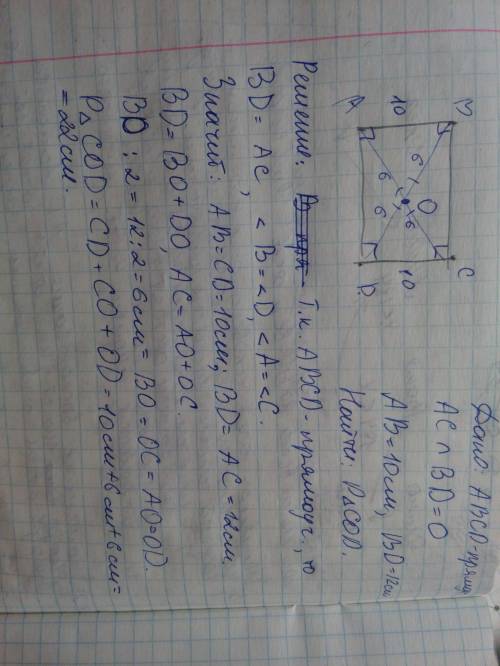 B
C
A
D
O
10
10
6
6
6
6
Дано: ABCD-прямоуг
AC ∩ BD = O
AB = 10см, BD = 12см
Найти: P△COD.
Решение: Т.к. ABCD - прямоуг., то
BD = AC, <B = <D, <A = <C.
Значит: AB = CD = 10см; BD = AC = 12см.
BD = BO + DO, AC = AO + OC.
BD : 2 = 12 : 2 = 6см = BO = OC = AO = OD.
P△COD = CD + CO + OD = 10см + 6см + 6см =
= 22см.